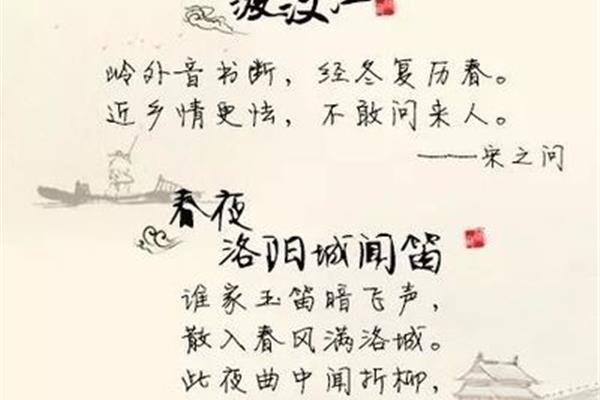 渡汉江
岭外音书断，经冬复历春。
近乡情更怯，不敢问来人。
——宋之问
春夜
洛阳城闻笛
谁家玉笛暗飞声，
散入春风满洛城。
此夜曲中闻折柳，